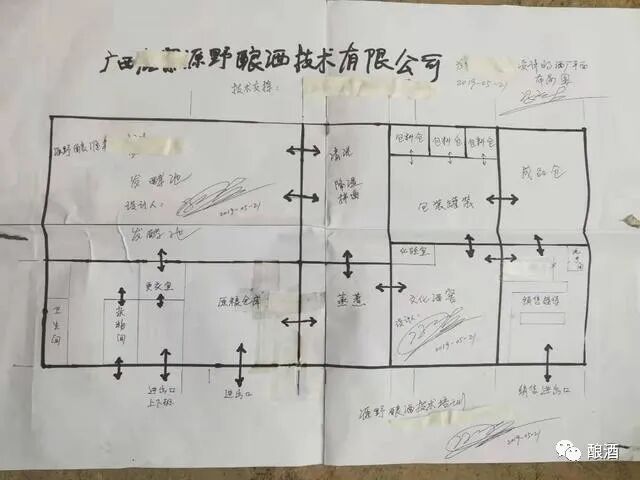 广西 源野酿酒技术有限公司
设计的酒厂平面
布局图
2019-05-21
技术支持:
源野酿酒
发酵池
设计人:
2019-05-21
发酵池
清洗
降温
拌曲
包材仓
包材仓
包材仓
包装罐装
成品仓
卫生间
杂物间
更衣室
原粮仓库
蒸煮
化验室
文化酒窖
设计人:
2019-05-21
销售
进出口
上下班
进出口
销售进出口
源野酿酒技术培训
2019-05-21
酿酒